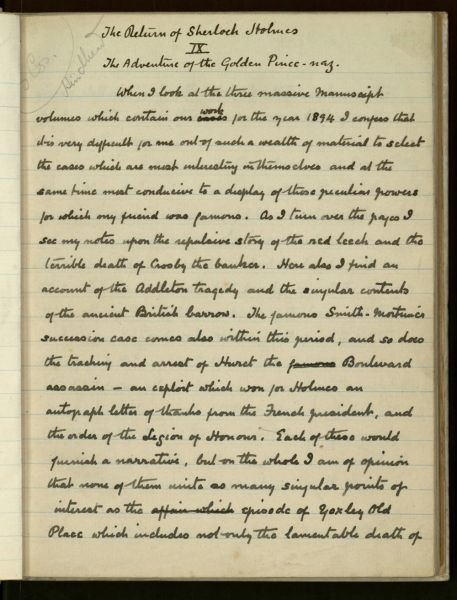 The Return of Sherlock Holmes
IX
The Adventure of the Golden Pince-nez.
When I look at the three massive Manuscript
work
volumes which contain our cases for the year 1894 I confess that
it is very difficult for me out of such a wealth of material to select
the cases which are most interesting in themselves and at the
same time most conducive to a display of those peculiar powers
for which my friend was famous. As I turn over the pages I
see my notes upon the repulsive story of the red leech and the
terrible death of Crosby the banker. Here also I find an
account of the Addleton tragedy and the singular contents
of the ancient British barrow. The famous Smith-Mortimer
succession case comes also within this period, and so does
the tracking and arrest of Huret the famous Boulevard
assassin – an exploit which won for Holmes an
autograph letter of thanks from the French president, and
the order of the Legion of Honour. Each of these would
furnish a narrative, but on the whole I am of opinion
that none of them unite so many singular points of
interest as the affair which episode of Yoxley Old
Place which includes not only the lamentable death of